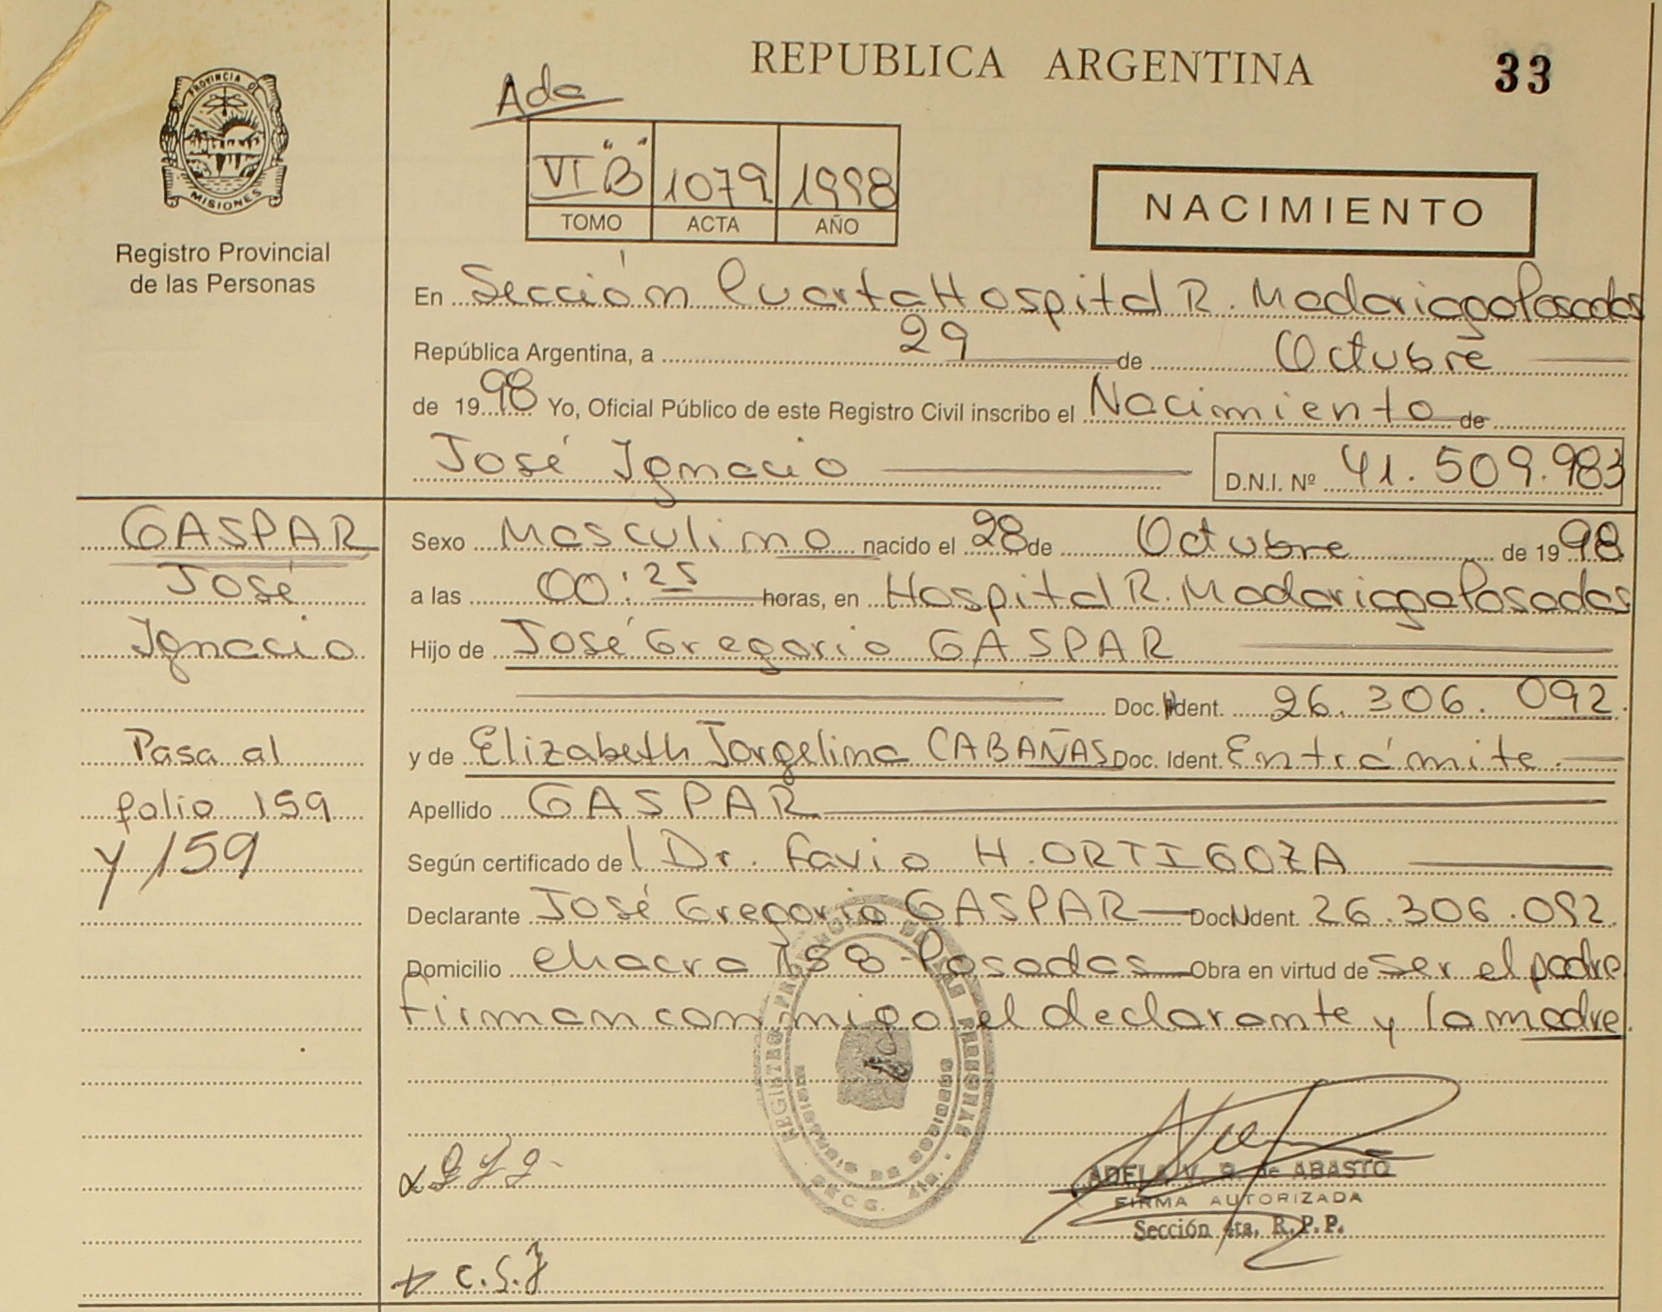 REPUBLICA ARGENTINA
33
Ada
PROVINCIA DE
MISIONES
Registro Provincial
de las Personas
VI "B" 1079 1998
TOMO ACTA AÑO
NACIMIENTO
En Sección Cuarta Hospital R. Madariaga Posadas
República Argentina, a 29 de Octubre
de 1998 Yo, Oficial Público de este Registro Civil inscribo el Nacimiento de
José Ignacio D.N.I. Nº 41.509.983
GASPAR
José
Ignacio
Pasa al
folio 159
y 159
Sexo Masculino nacido el 28 de Octubre de 1998
a las 00:25 horas, en Hospital R. Madariaga Posadas
Hijo de José Gregorio GASPAR
Doc. Ident. 26.306.092
y de Elizabeth Jorgelina CABAÑAS Doc. Ident. En trámite.
Apellido GASPAR
Según certificado del Dr. Favio H. ORTIGOZA
Declarante José Gregorio GASPAR Doc. Ident. 26.306.092
Domicilio chacra 158-Posadas Obra en virtud de ser el padre
firman conmigo el declarante y la madre.
REGISTRO PROVINCIAL DE LAS PERSONAS
SECC. 4ta.
ADELA V. de ABASTO
FIRMA AUTORIZADA
Sección 4ta. R.P.P.